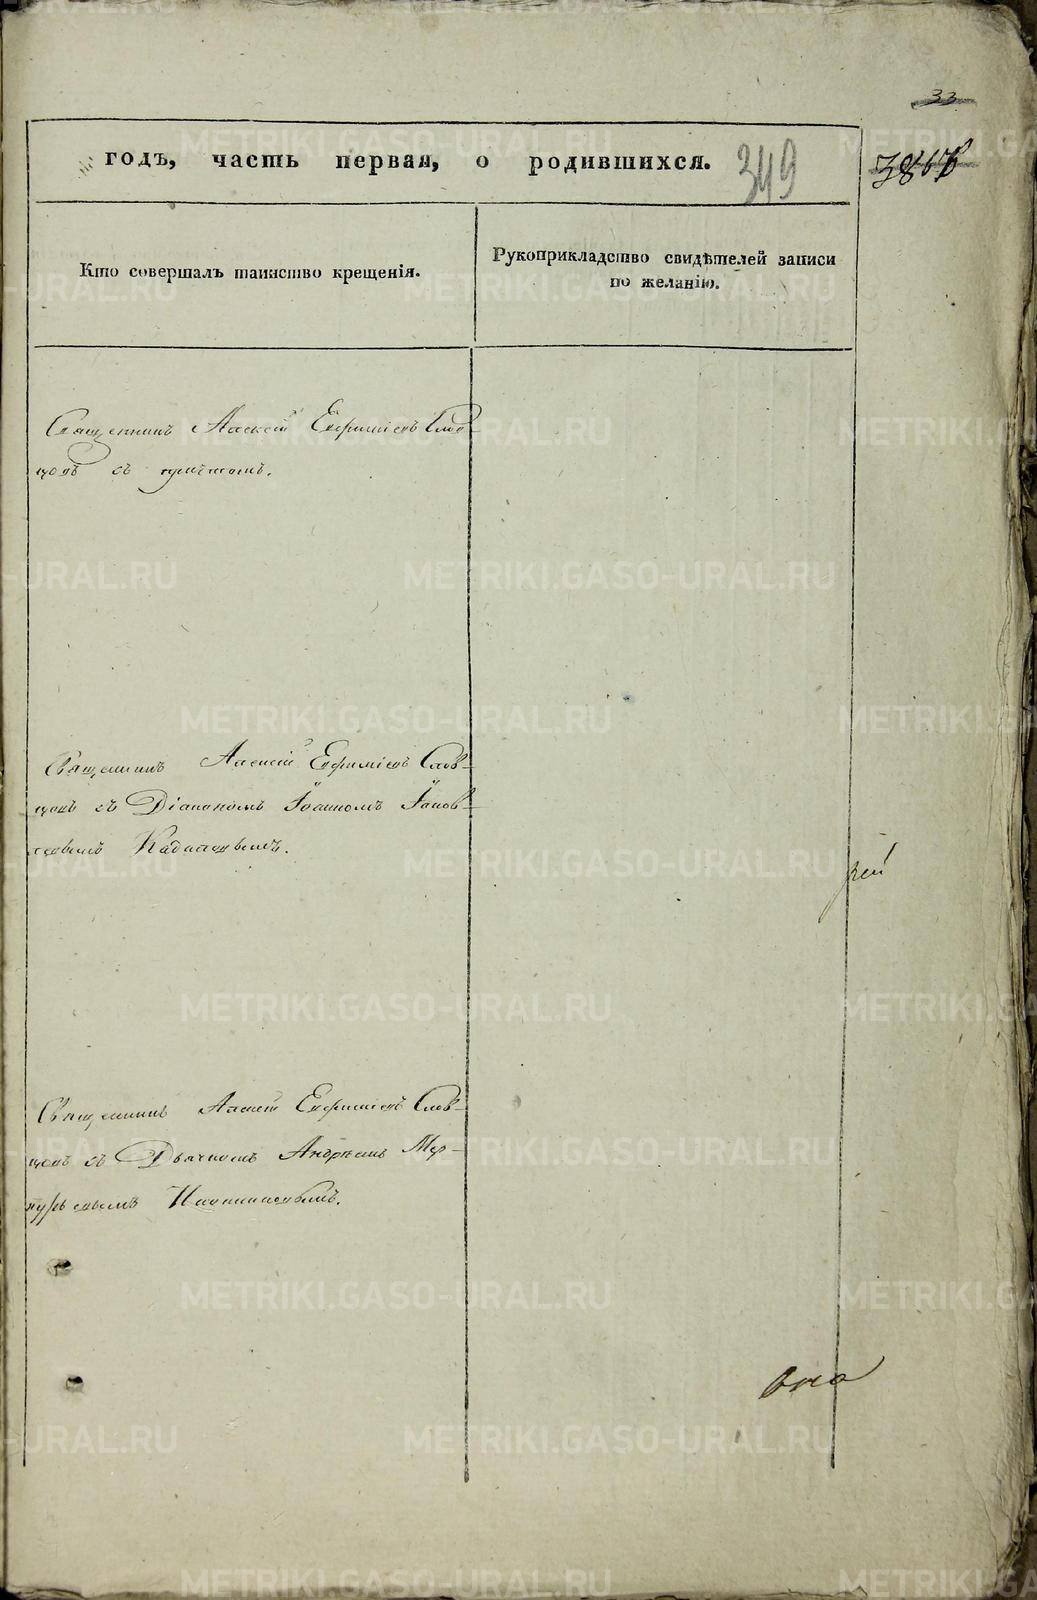 33
годъ, часть первая, о родившихся. 349
Кто совершалъ таинство крещенія.
Рукоприкладство свидѣтелей записи
по желанію.
Священникъ Алексій Евфиміевъ Слов-
цовъ съ причтомъ.
Священникъ Алексій Евфиміевъ Слов-
цовъ съ Діакономъ Іоанномъ Іаков-
Священникъ Алексій Евфиміевъ Слов-
цовъ съ Дьячкомъ Андреемъ Мер-
курьевымъ
METRIKI.GASO-URAL.RU